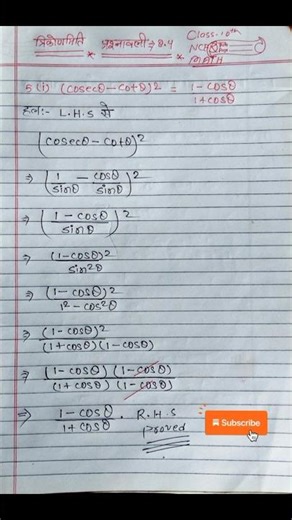 त्रिकोणमिति प्रश्नावली → 8.4 Class:10th
NCERT
MATH
5 (i) (cosecθ-cotθ)2 = 1-cosθ/1+cosθ
हल:- L.H.S से
(cosecθ-cotθ)2
⇒ (1/sinθ - cosθ/sinθ)2
⇒ (1-cosθ/sinθ)2
⇒ (1-cosθ)2/sin2θ
⇒ (1-cosθ)2/12-cos2θ
⇒ (1-cosθ)2/(1+cosθ)(1-cosθ)
⇒ (1-cosθ)(1-cosθ)/(1+cosθ)(1-cosθ)
⇒ 1-cosθ/1+cosθ . R.H.S
proved
Subscribe